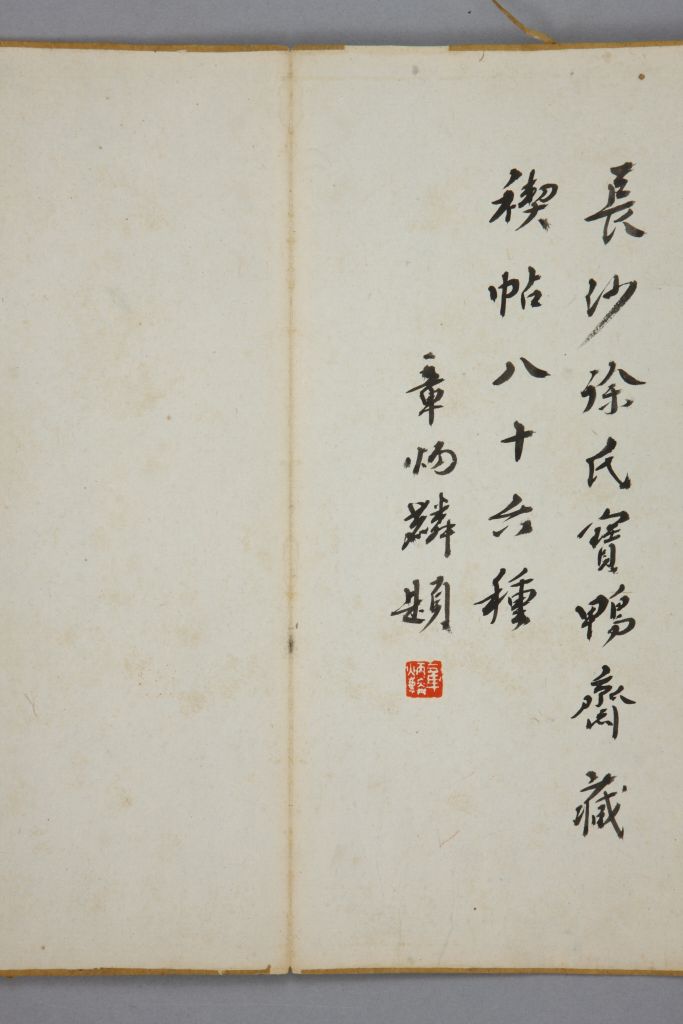 長沙徐氏寶鴨齋藏
禊帖八十六種
章炳麟題
章炳麟